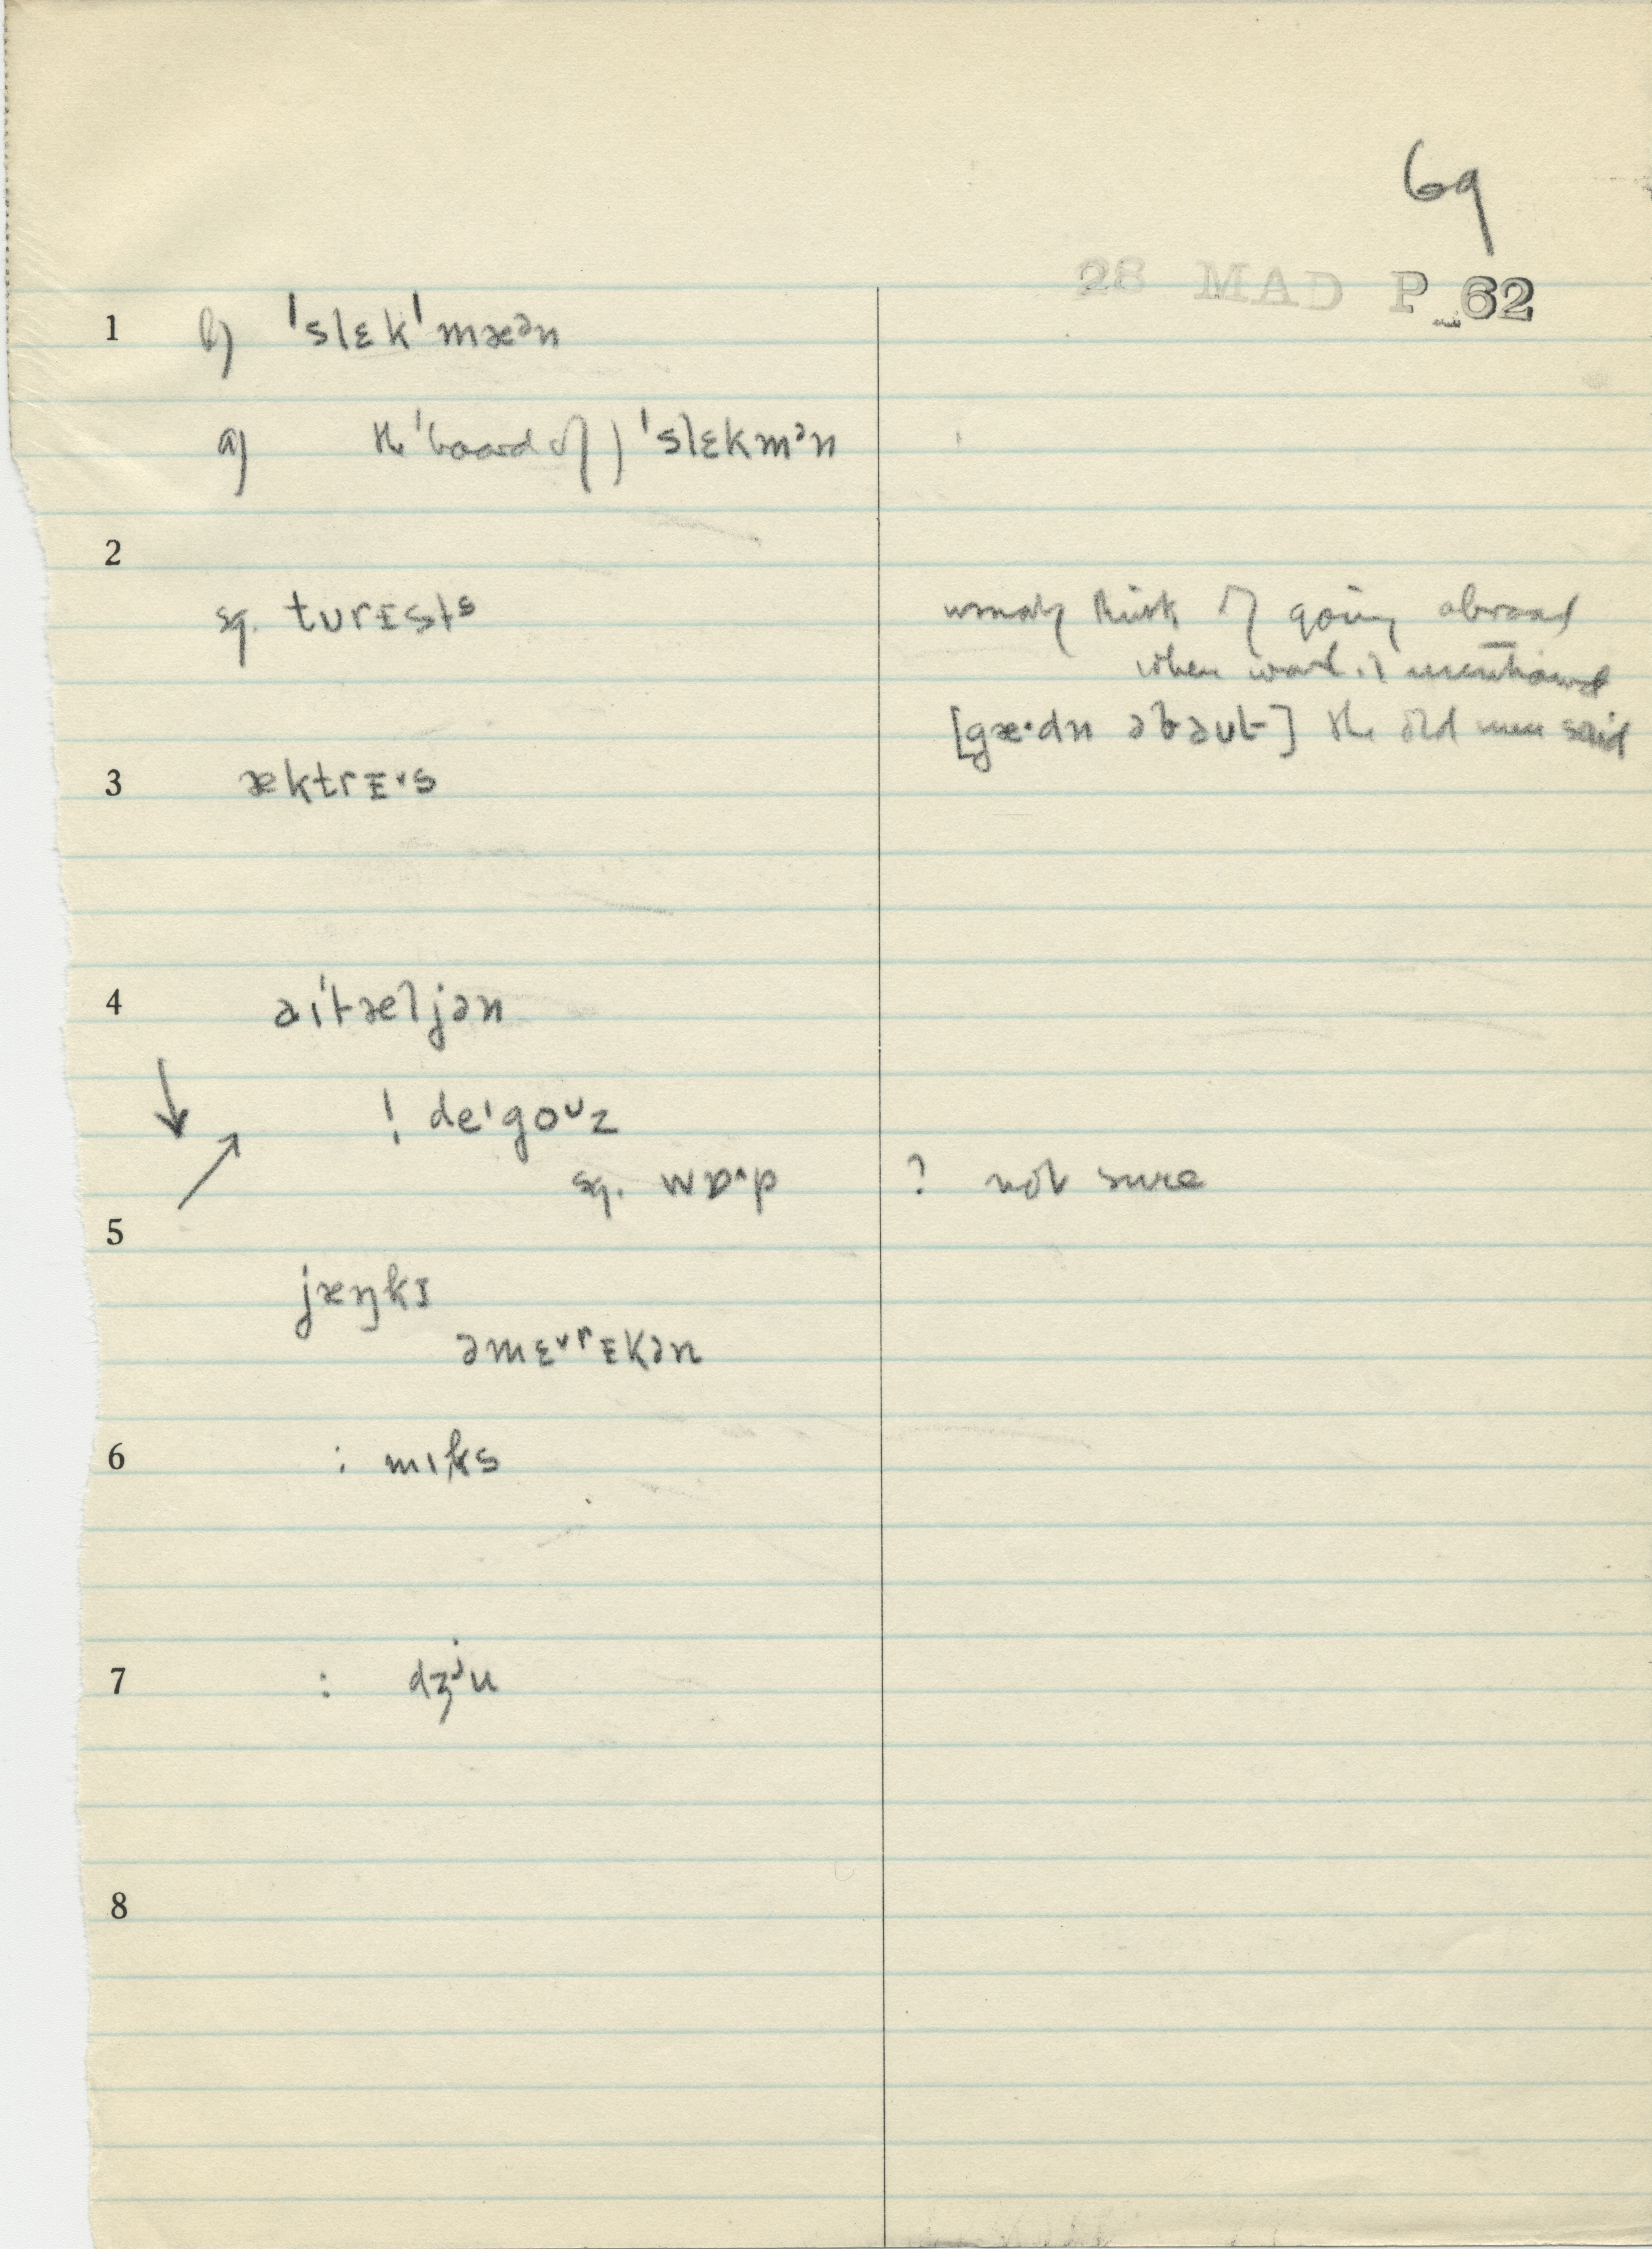 69
28 MAD P 62
1 b) ˈslɛkˈmæᵊn
a) the ˈboard of) ˈslɛkmᵊn
2
sg. tᴜrɪstˢ usually think of going abroad
when word is mentioned
[gæ·dn əbaᴜt] the old men said
3 æktrɪ˅s
4 aɪˈtæljən
! deˈgoᶸz
sg. wɒ^p ? not sure
5
jæŋkɪ
əmɛ˅rɪkən
6 : mɪks
7 : dʒʲu
8